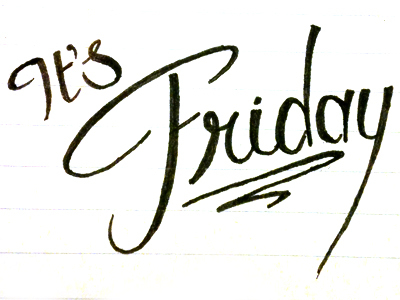 It's
Friday